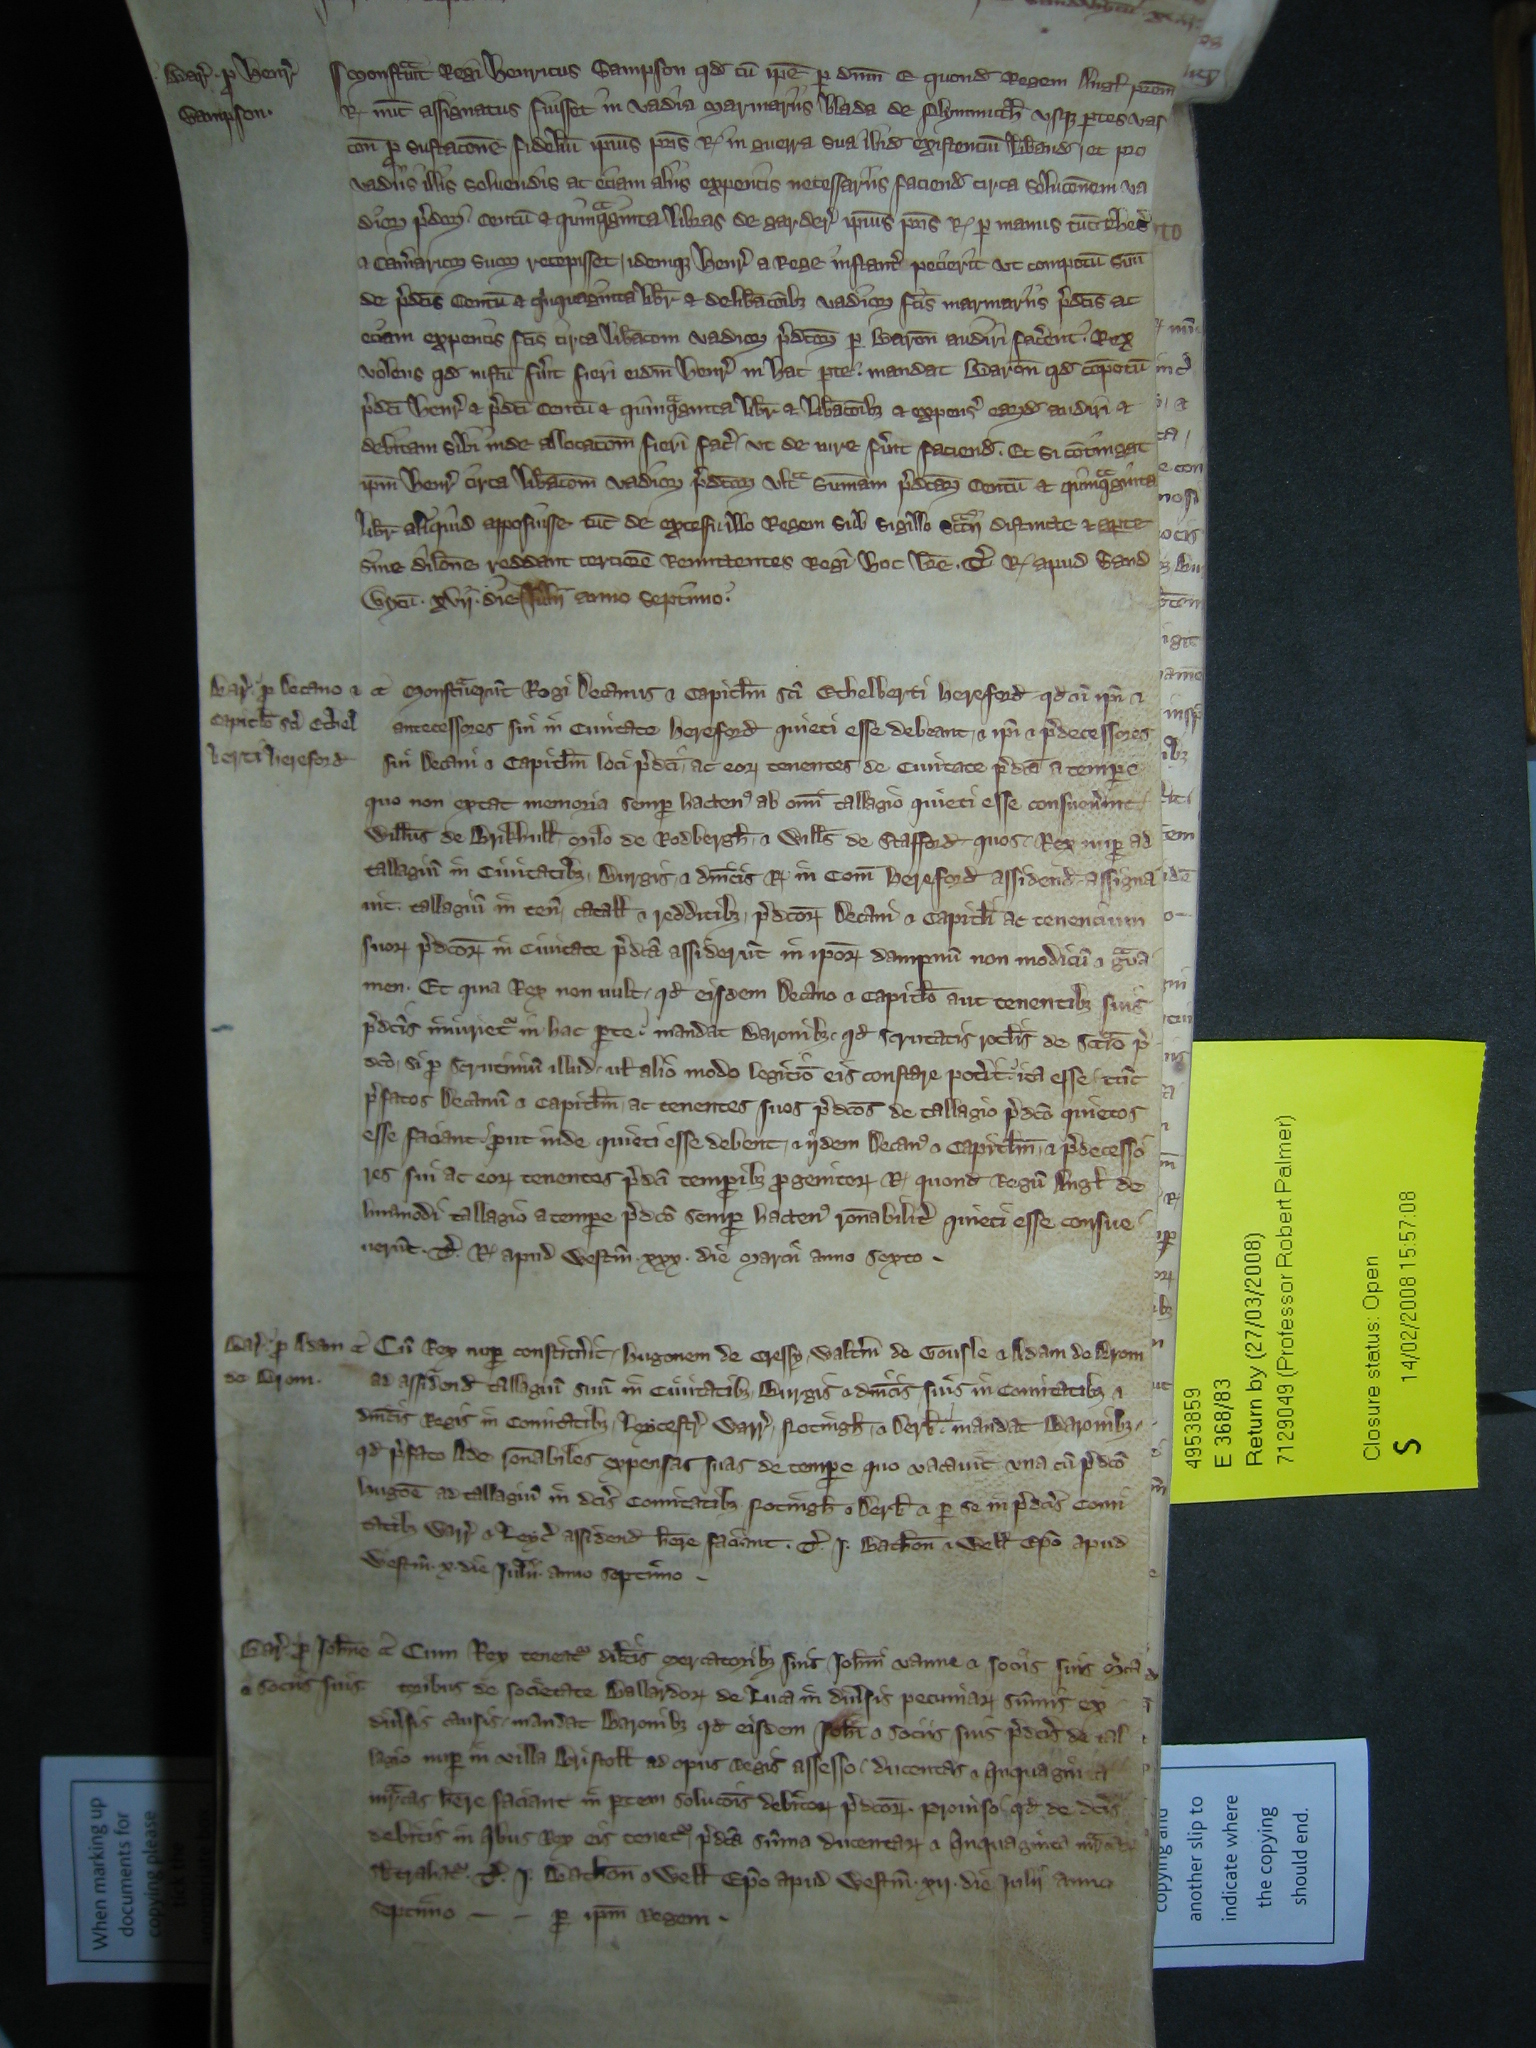 Bar͂ . p Henr͂
Sampson .
Monstravit Regi Henricus Sampson qd cū ipē p dnm E quond Regem Angl prem
R nuc assignatus fuisset in vadia marinariis blada de Plymmuth usqz ptes Vas
con p sustacone fidelium ipius pris R in guerra sua ibid existencium liband et pro
vadiis illis solvendis ac eciam aliis expencis necessariis faciend circa solucōnem va
diorz pdcorz Centū & quinqaginta libras de garder͂ ipius pris R p manus tūc
& Camarior suorz recepisset idemqz Henr͂ a Rege instant͂ pecierit ut compotū suū
de pdcis Centū & qinquaginta libr & delibacoibz vadiorz fcis marinariis pdcis ac
eciam expencis fcis circa libacom vadiorz pdcorz p Baron audiri facent . Rex
volens qd iustū fu͂it fieri eidm Henr͂ in hac pte mandat Baron qd copotū
pdci Henr͂ & pdci Centū & quinqaginta libr & libacoibz & expens͂ audiri &
debitam sibi inde allocacom fieri fac͂ ut de iure fu͂it faciend . Et si cōtingat
ipm Henr͂ circa libacom vadiorz pdcorz ult͂ summam pdcam Centū & quinqaginta
libr aliquid apposuisse tūc de excessu illo Regem sub sigillo scc͂ii distincte & apte
sine dilone reddant certiore Remittentes Regi hoc bre . T͂ R apud Sand
wycū . xvii . die Julii anno septimo .
Bar͂ . p Decano &
Capitlo sci Ethel
berti Hereford
Monstraverūt Regi Decanus & Capitlm sci Ethelberti Hereford qd cū ipi &
antecessores sui in Civitate Hereford quieti esse debeant & ipi & pdecessores
sui Decani & Capitlm loci pdci ac eorz tenentes de Civitate pdca a tempe
quo non extat memoria semp hacten9 ab omi tallagio quieti esse consuev͂int
Willms de Brikhull Milo de Rodbergh & Wills de Stafford quos Rex nup ad
tallagiū in Civitatibz , Burgis , & dnicis R in Com Hereford assidend assigna
vit . tallagiū in ten͂ catall & redditibz pdcorz Decani & Capitli ac tenencium
suorz pdcorz in Civitate pdca assiderūt in iporz dampnū non modicū & gva
men . Et quia Rex non vult qd eisdem Decano & Capitlo aut tenentibz suis
pdcis iniuriet͂ in hac pte mandat Baronibz qd scrutatis rotlis de scacio p
dco , si p scrutiniū illud , ul alio modo legitio eis constare pot͂it ita esse tūc
pfatos Decanū & Capitlm ac tenentes suos pdcos de tallagio pdco quietos
esse faciant put inde quieti esse debent & iidem Decan9 & Capitlm & pdecesso
res sui ac eorz tenentes pdca temporibz progenitorz R quond Regū Angl de
huiusmodi tallagio a tempe pdco semp hacten9 ronabilit͂ quieti esse consue
verūt . T͂ R apud Westm . xxx . die Marcii anno sexto
Bar͂ . p Adam
de Brom .
Cū Rex nup constitu͂it Hugonem de Cressy , Walt͂m de Gousle & Adam de Brom
ad assidend tallagiū suū in Civitatibz , Burgis & dnicis suis in Comitatibz &
dnicis Regis in Comitatibz , Leycestr͂ Warr͂ , Notingh , & Derb . mandat Baronibz .
qd pfato Ade ronabiles expensas suas de tempe quo vacavit una cū pdco
Hugoe ad tallagiū in dcis Comitatibz Notingh & Derb & p se in pdcis Comi
tatibz Warr͂ & Leyc͂ assidend here faciant . T͂ J . Bathon & Well Epo apud
Westm . x . die Julii . anno septimo
Bar͂ . p Johne
& sociis suis
Cum Rex teneat͂ dilcis mercatoribz suis Johni Vanne & sociis suis mca
toribus de societate Ballardorz de Luca in div͂sis pecuniarz sumis ex
div͂sis causis , mandat Baronibz qd eisdem Johi & sociis suis pdcis de tal
lagio nup in villa Bristoll ad opus Regis assesso , ducentas & qinquaginta
mcas here faciant in ptem solucois debitorz pdcorz . proviso qd de dcis
debitis in qibus Rex eis tenet͂ pdca suma ducentarz & qinquaginta mcarz
sbtrahat͂ . T͂ . J . Bathon & Well Epo apud Westm . xii . die Julii anno
septimo — — p ipm Regem .
4953859
E 368/83
Return by (27/03/2008)
7129049 (Professor Robert Palmer)
Closure status: Open
S 14/02/2008 15:57:08
When marking up
documents for
copying please
copying and
another slip to
indicate where
the copying
should end.